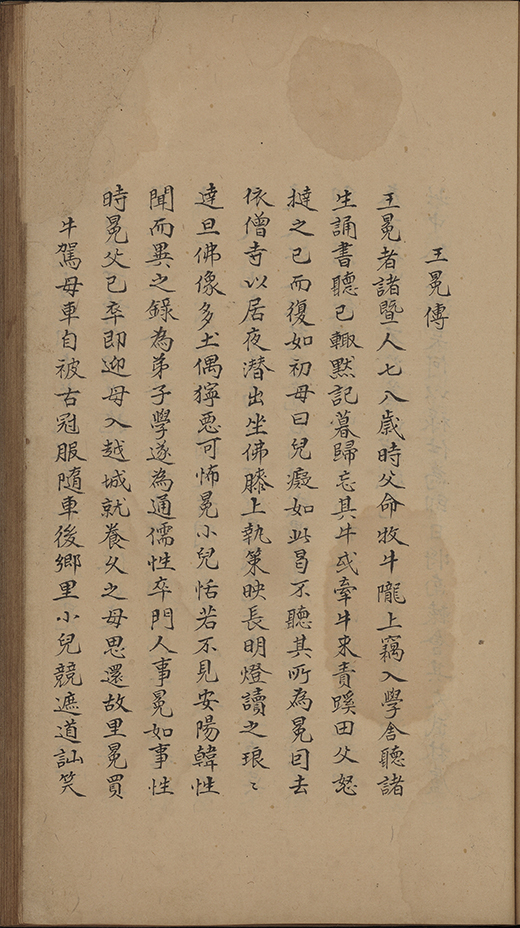 王冕傳
王冕者諸暨人七八歲時父命牧牛隴上竊入學舍聽諸
生誦書聽已輙默記暮歸忘其牛或牽牛来責蹊田父怒
撻之已而復如初母曰兒癡如此曷不聽其所為冕因去
依僧寺以居夜潜出坐佛膝上執策映長明燈讀之琅〻
達旦佛像多土偶獰惡可怖冕小兒恬若不見安陽韓性
聞而異之錄為弟子學遂為通儒性卒門人事冕如事性
時冕父已卒即迎母入越城就養久之母思還故里冕買
牛駕母車自被古冠服隨車後鄉里小兒競遮道訕笑